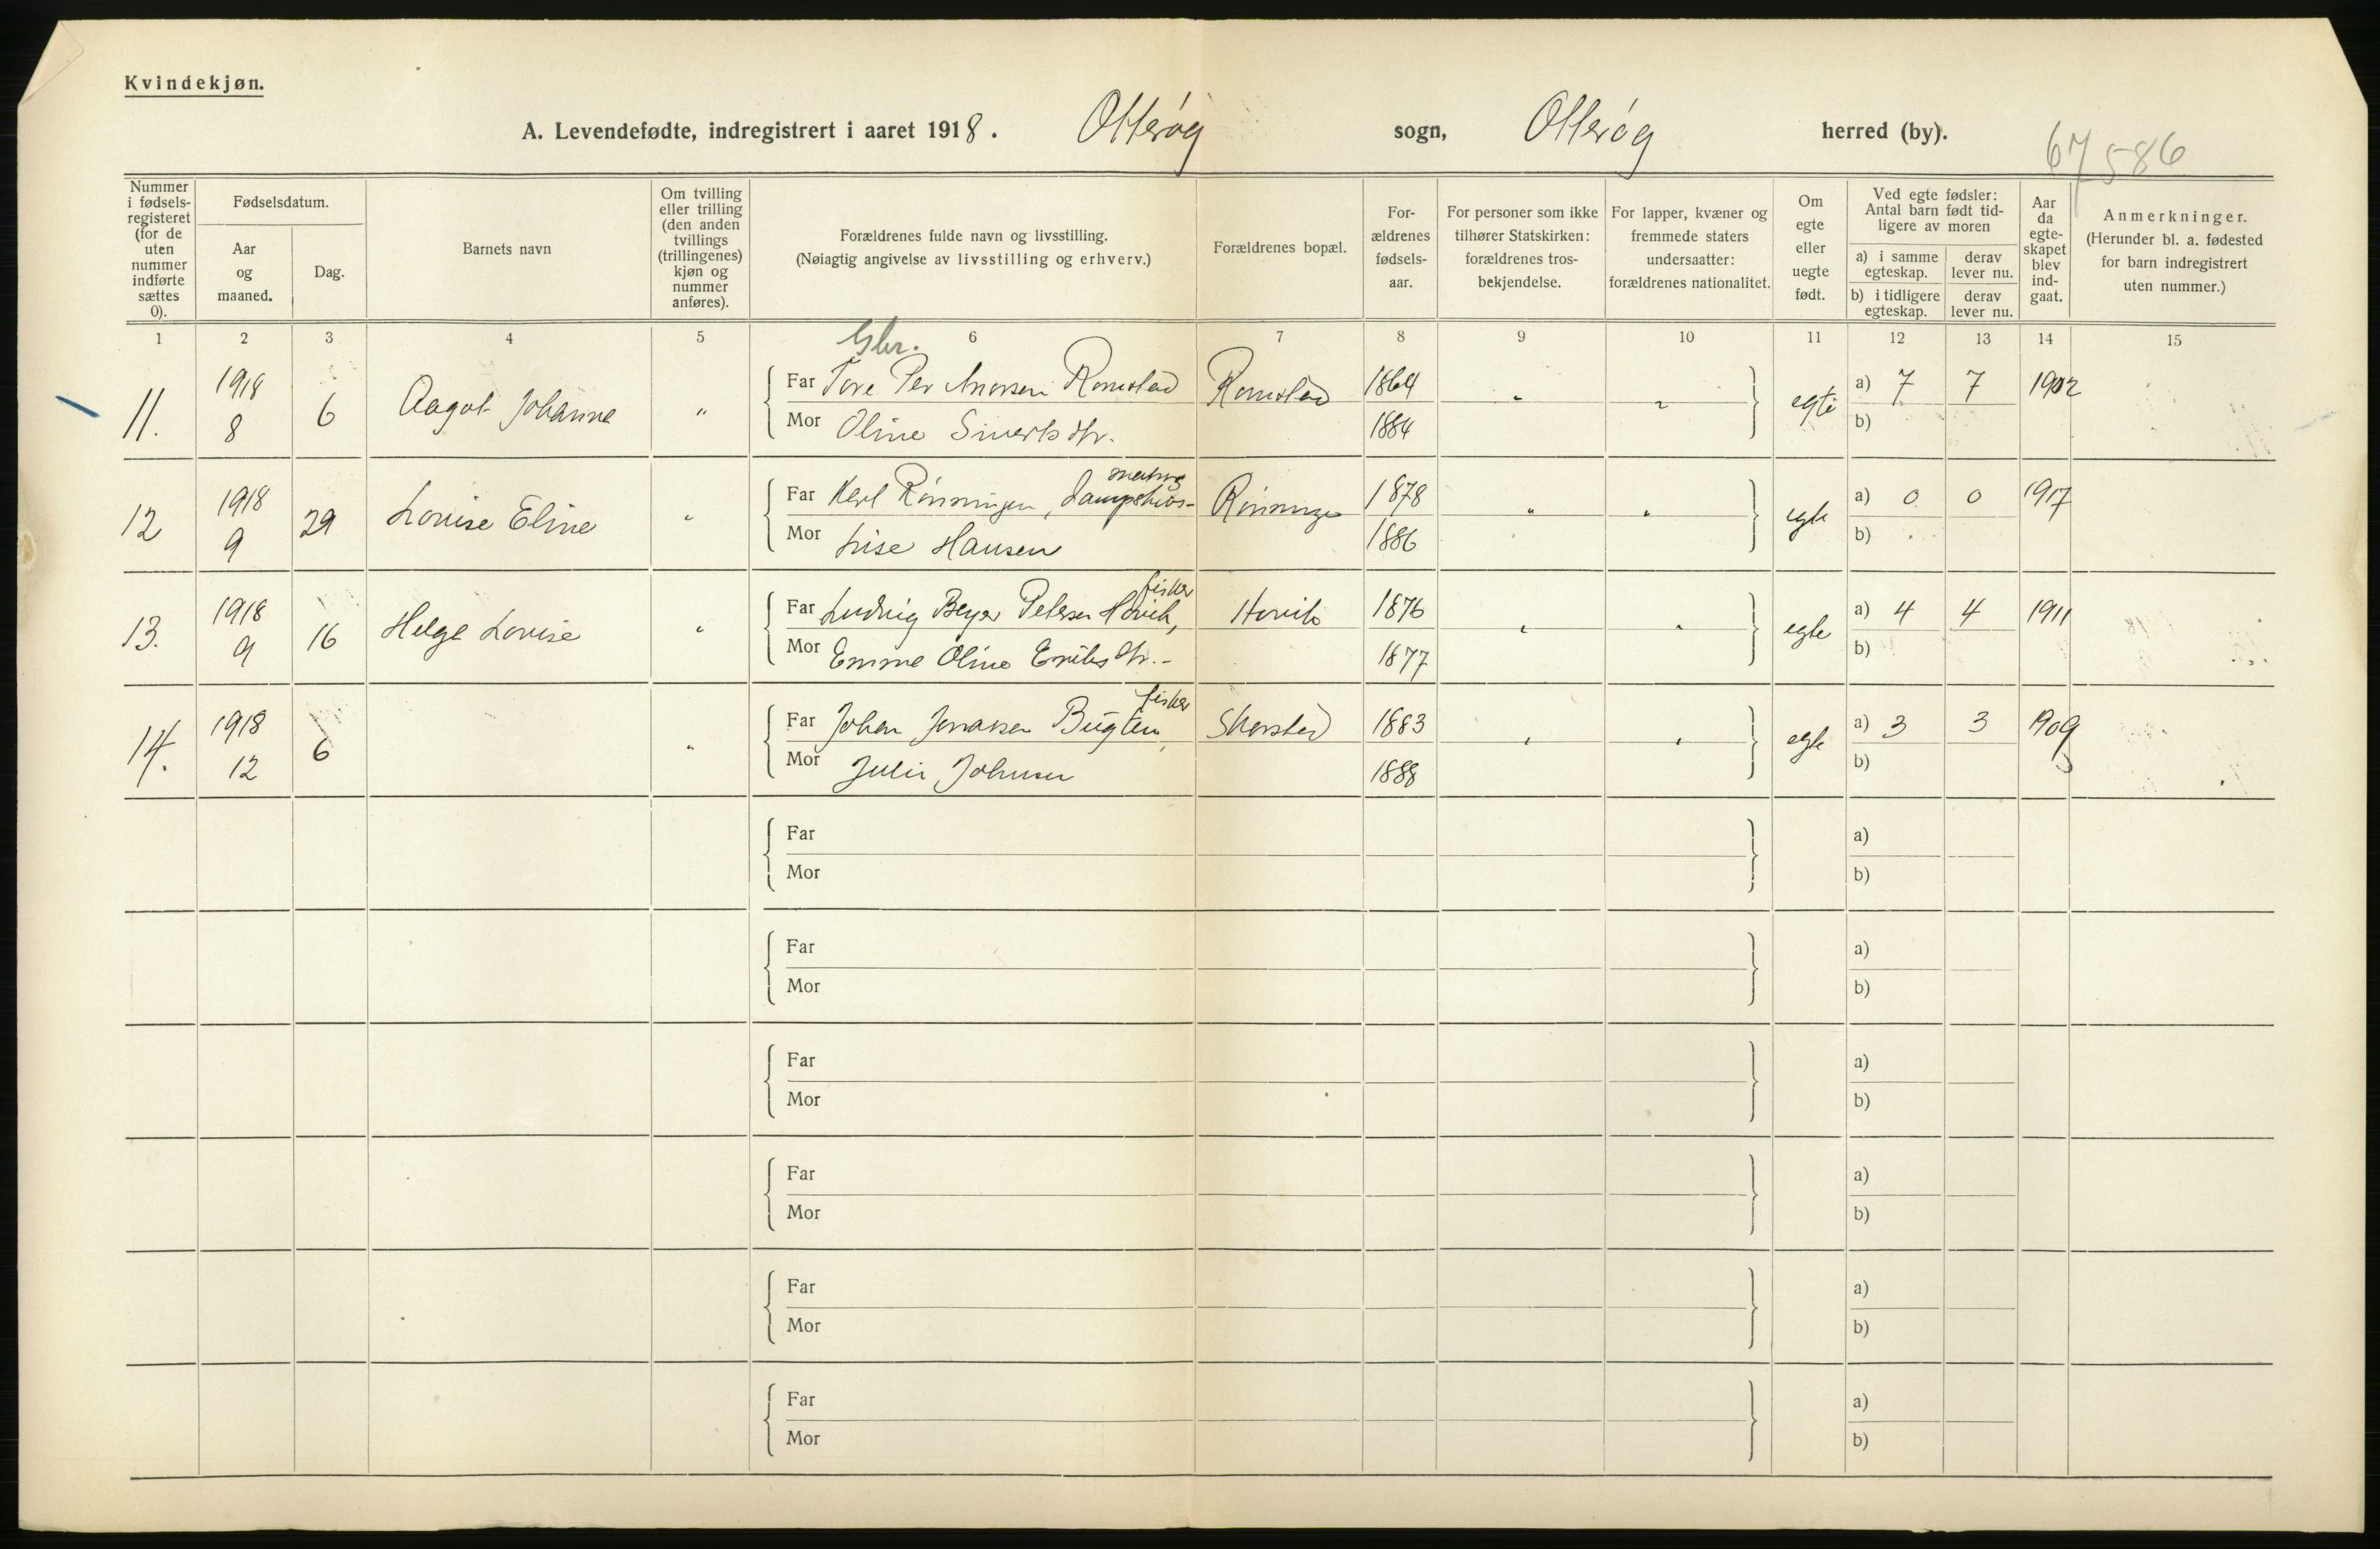 Kvindekjøn.
A. Levendefødte, indregistrert i aaret 1918. Otterøy sogn, Otterøy herred (by).
67586
Nummer i fødselsregisteret (for de uten nummer indførte sættes 0).
Fødselsdatum.
Aar og maaned.
Dag.
Barnets navn
Om tvilling eller trilling (den anden tvillings (trillingenes) kjøn og nummer anføres).
Forældrenes fulde navn og livsstilling.
(Nøiagtig angivelse av livsstilling og erhverv.)
Forældrenes bopæl.
For-ældrenes fødsels-aar.
For personer som ikke tilhører Statskirken: forældrenes trosbekjendelse.
For lapper, kvæner og fremmede staters undersaatter: forældrenes nationalitet.
Om egte eller uegte født.
Ved egte fødsler: Antal barn født tidligere av moren
a) i samme egteskap. derav lever nu.
b) i tidligere egteskap. derav lever nu.
Aar da egteskapet blev indgaat.
Anmerkninger.
(Herunder bl. a. fødested for barn indregistrert uten nummer.)
1 2 3 4 5 6 7 8 9 10 11 12 13 14 15
Gbr.
11. 1918 8 6 Aagot Johanne " Far Tore Per Romstad Romstad 1864 " " egte a) 7 7 1902
Mor Oline Siverts dtr. 1884 b)
12 1918 9 29 Lovise Eline " Far Karl Rönningen, 1878 " " egte a) 0 0 1917
Mor Lise Hansen 1886 b)
fisker
13. 1918 9 16 Helga Lovise " Far Ludvig Beyer Petersen Hovik, Hovik 1876 " " egte a) 4 4 1911
Mor Emma Oline Eriks dtr. 1877 b)
fisker
14. 1918 12 6 " Far Johan Jonassen Bugten, 1883 " " egte a) 3 3 1909
Mor Julie Johnsen 1888 b)
Far a)
Mor b)
Far a)
Mor b)
Far a)
Mor b)
Far a)
Mor b)
Far a)
Mor b)
Far a)
Mor b)